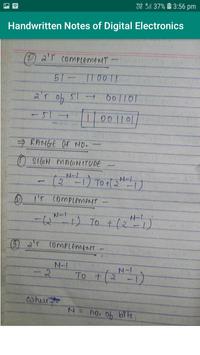 37% 3:56 pm
Handwritten Notes of Digital Electronics
① 2's COMPLEMENT –
51 – 110011
2's of 51 → 001101
– 51 → 1 001101
⇒ RANGE OF NO. –
① SIGN MAGNITUDE –
– (2^(N-1) – 1) TO + (2^(N-1) – 1)
② 1's COMPLEMENT –
– (2^(N-1) – 1) TO + (2^(N-1) – 1)
③ 2's COMPLEMENT –
– 2^(N-1) TO + (2^(N-1) – 1)
where
N = no. of bits